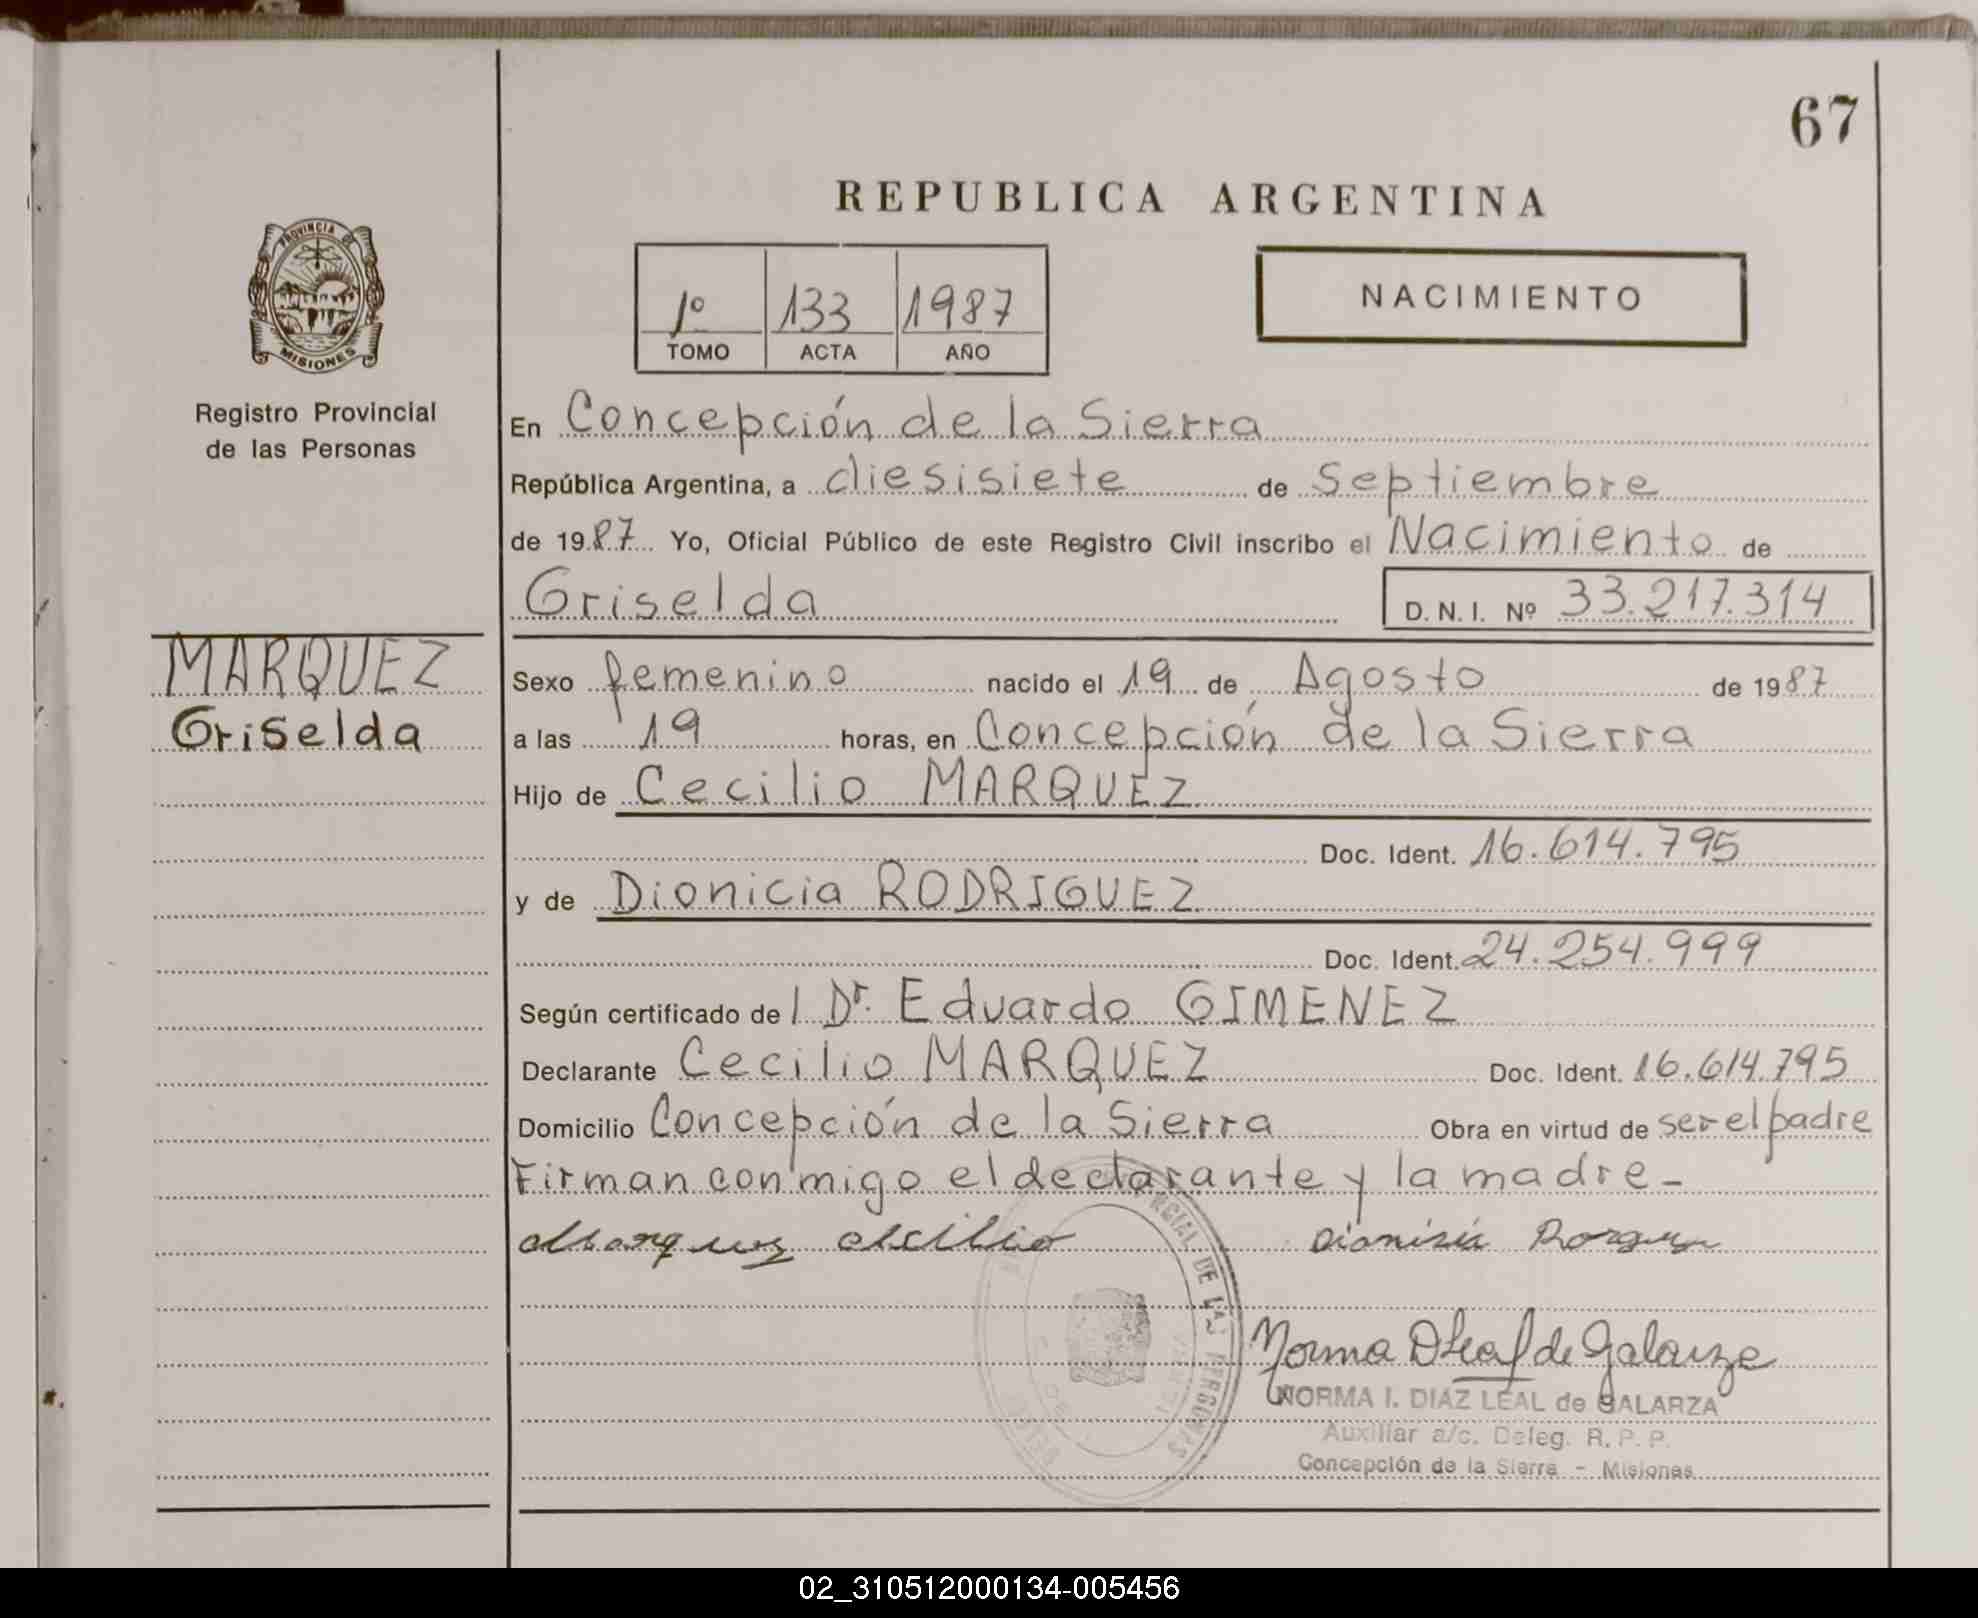 67
REPUBLICA ARGENTINA
PROVINCIA DE
MISIONES
Registro Provincial
de las Personas
1º 133 1987
TOMO ACTA AÑO
NACIMIENTO
En Concepción de la Sierra
República Argentina, a diesisiete de Septiembre
de 1987 Yo, Oficial Público de este Registro Civil inscribo el Nacimiento de
Griselda D. N. I. Nº 33.217.314
MARQUEZ
Griselda
Sexo femenino nacido el 19 de Agosto de 1987
a las 19 horas, en Concepción de la Sierra
Hijo de Cecilio MARQUEZ
Doc. Ident. 16.614.795
y de Dionicia RODRIGUEZ
Doc. Ident. 24.254.999
Según certificado de l Dr. Eduardo GIMENEZ
Declarante Cecilio MARQUEZ Doc. Ident. 16.614.795
Domicilio Concepción de la Sierra Obra en virtud de ser el padre
Firman conmigo el declarante y la madre-
Marquez cecilio Dionisia
DE LAS PERSONAS
Norma DLeal de Galarza
NORMA I. DIAZ LEAL de GALARZA
Auxiliar a/c. Deleg. R. P. P.
Concepción de la Sierra - Misiones
02_310512000134-005456